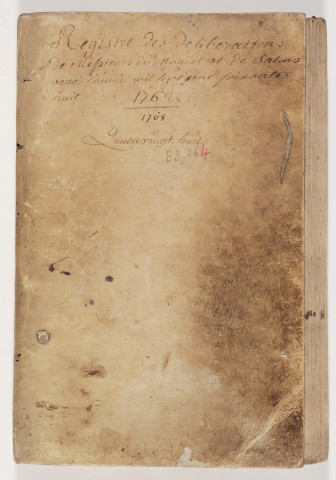 Registre des deliberations
De messieurs du magistrat de Salins
pour l'année mil sept cent soixante
huit 1768
1768
Quatrevingt huit
BB 4